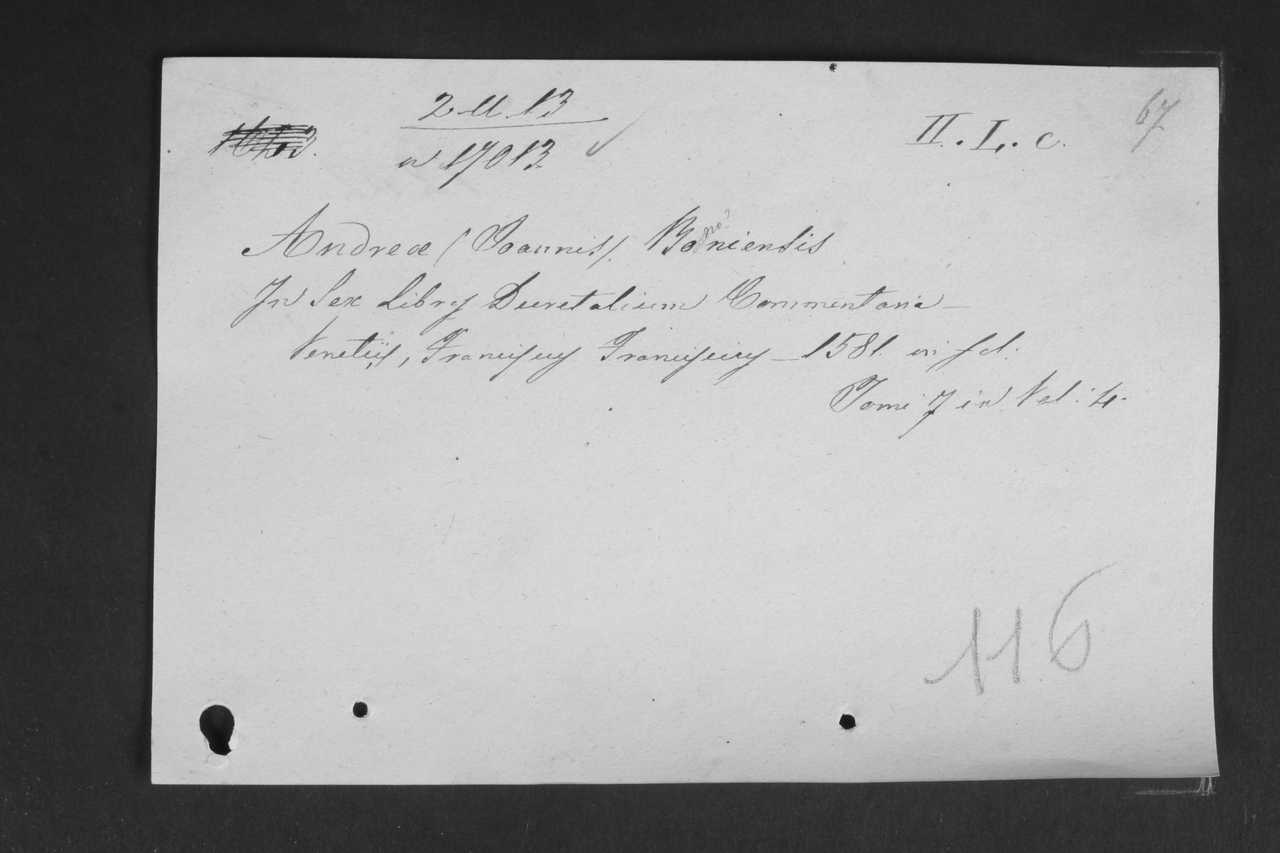 2 U 13
a 17013
II. I. c.
67
Andreæ (Joannis). Boniensis
no?
In Sex Libros Decretalium Commentaria
Venetijs, Franciscus Franciscius 1581. in fol:
Tomi 7 in Vol: 4.
116